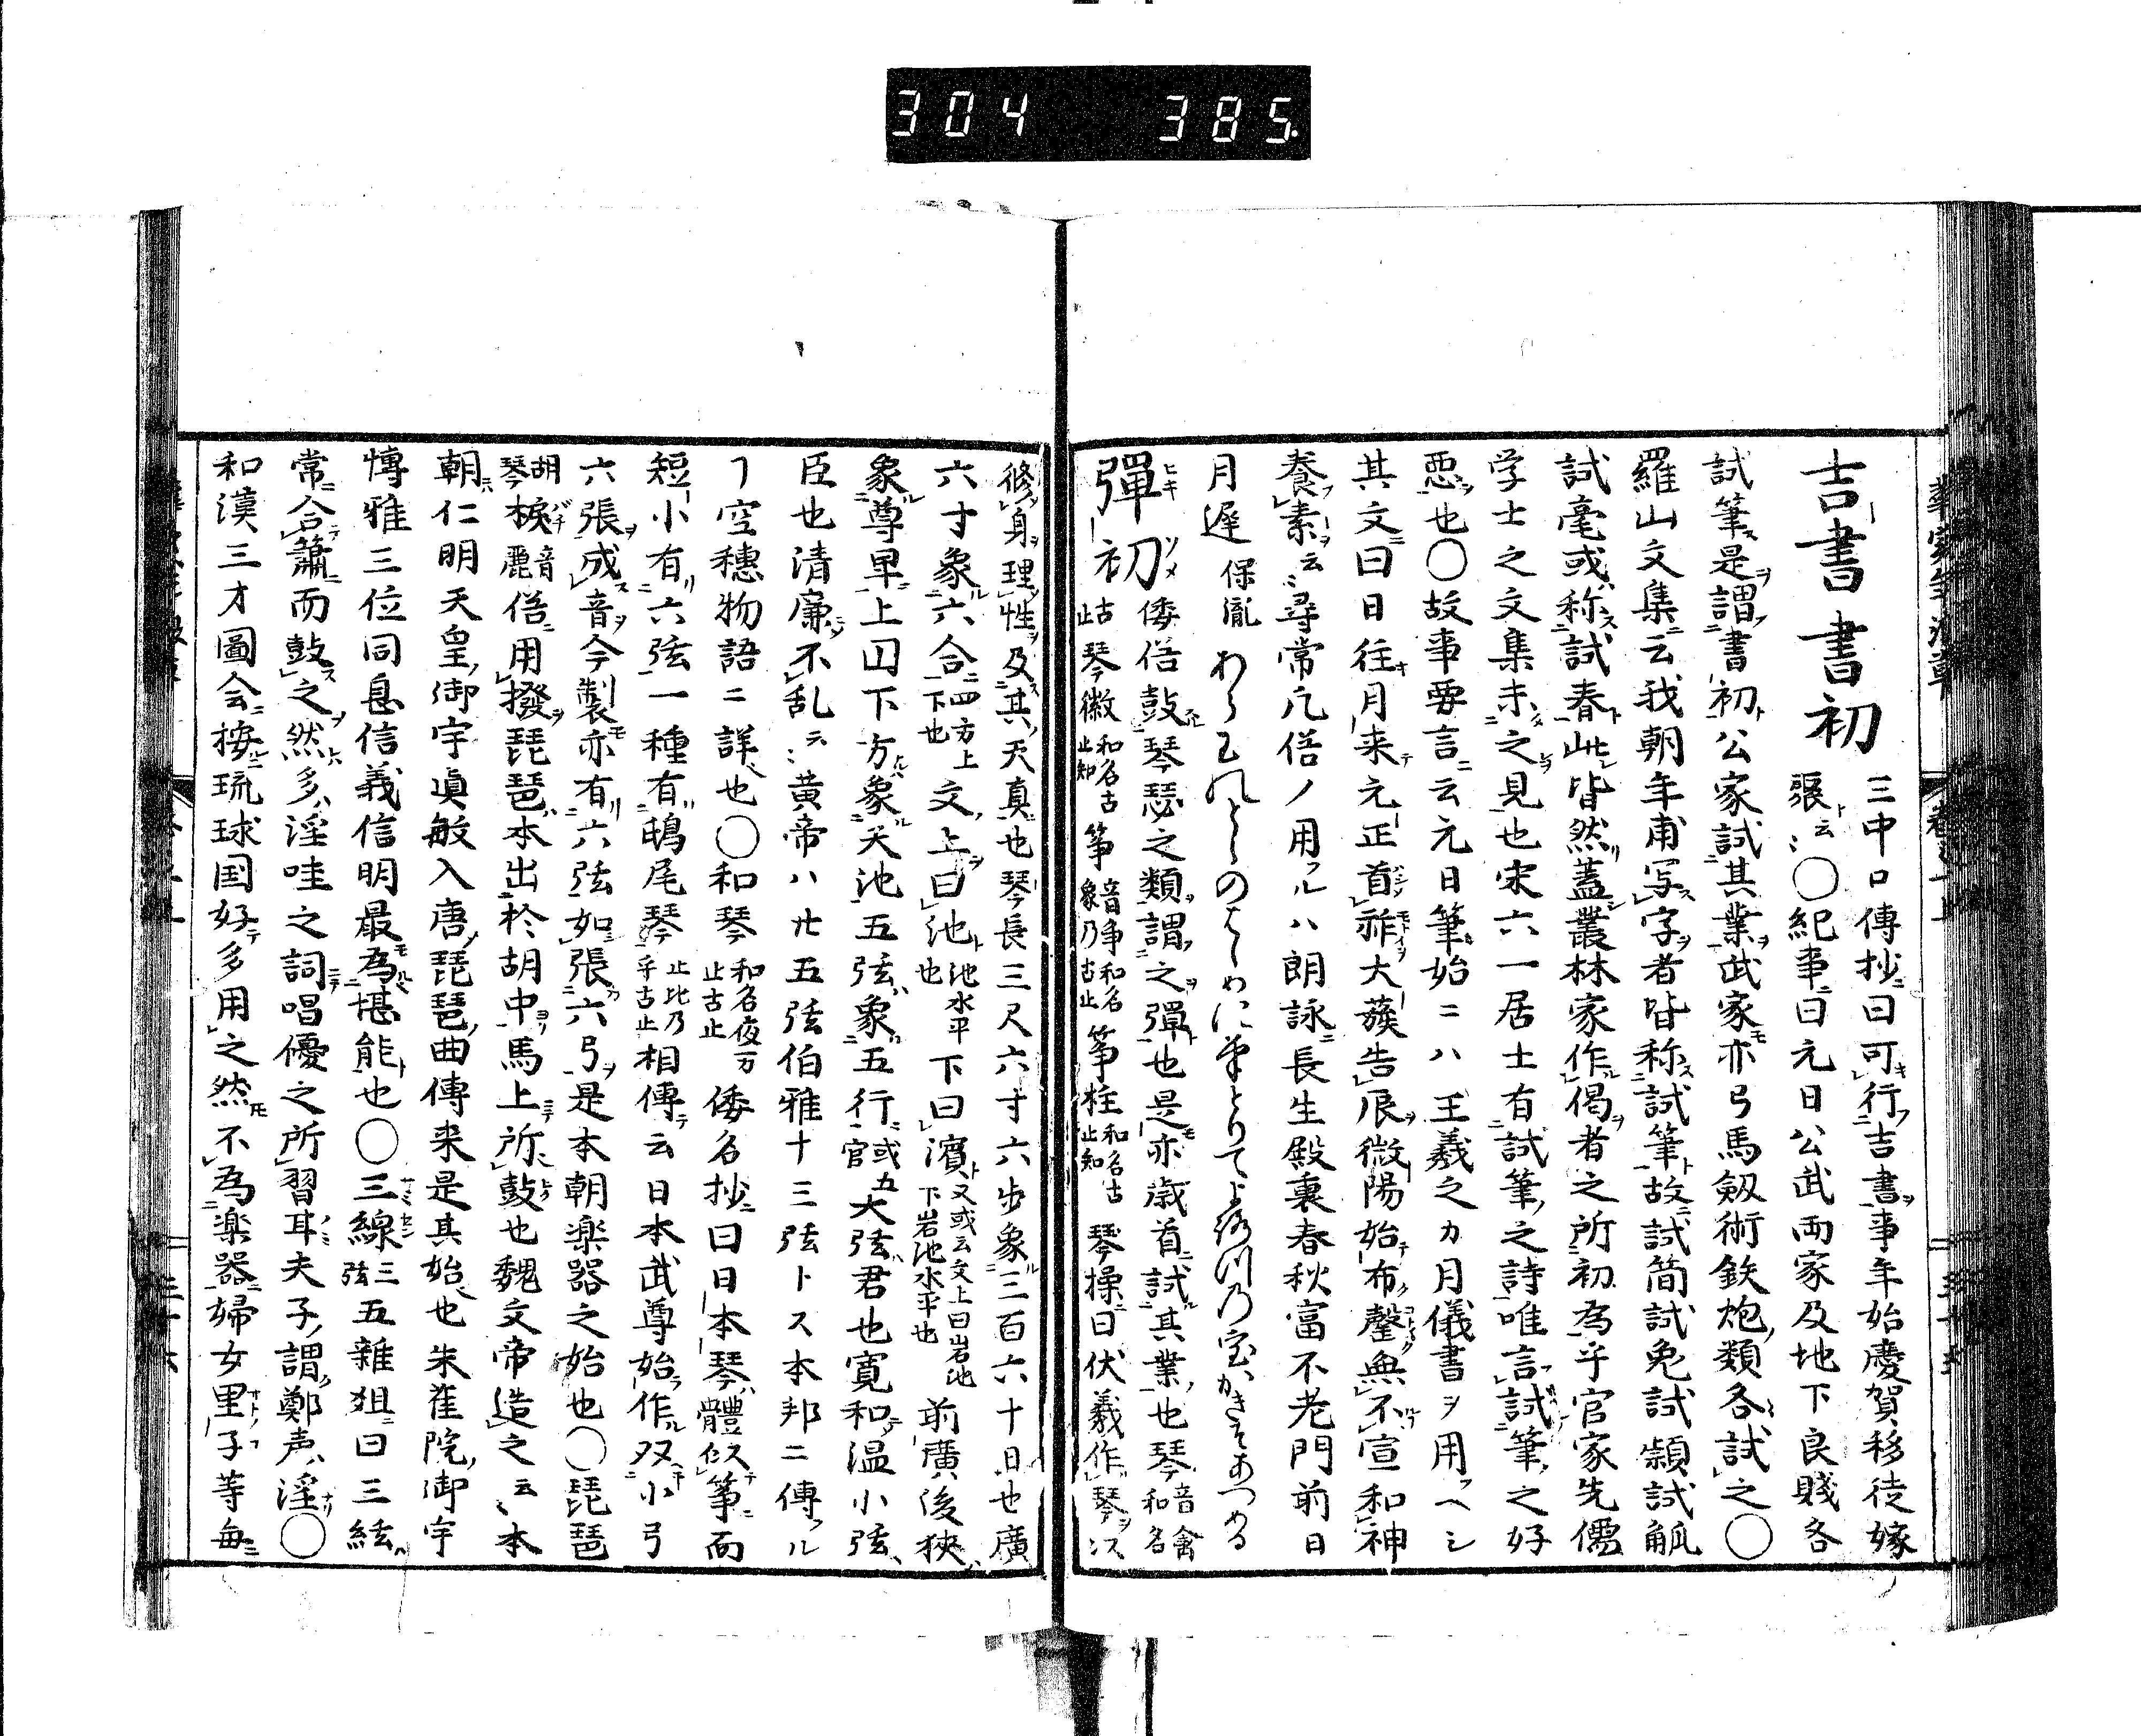 304 385
吉書書初 三中口傳抄曰可行吉書事年始慶賀移徒嫁
娶云〻〇紀事曰元日公武両家及地下良賤各
試筆是謂書初公家試其業武家亦弓馬剱術鉄炮類各試之〇
羅山文集云我朝年甫写字者皆称試筆故試簡試兎試頴試觚
試毫或称試春此皆然蓋叢林家作偈者之所初為乎官家先儒
学士之文集未之見也宋六一居士有試筆之詩唯言試筆之好
悪也〇故事要言云元日筆始ニハ王羲之カ月儀書ヲ用ヘシ
其文曰日往月来元正首祚大蔟告辰微陽始布罄無不宣和神
養素云〻尋常凡俗ノ用フルハ朗詠長生殿裏春秋富不老門前日
月遅 保胤
彈初 倭俗鼓琴瑟之類謂之彈也是亦歳首試其業也琴 音禽 和名
古止 琴徽 和名古止知 箏 音争 和名象乃古止 箏柱 和名古止知 琴操曰伏羲作琴
修身理性及其天真也琴長三尺六寸六歩象三百六十日也廣
六寸象六合 四方上下也 文上曰池 池水平也 下曰濱 又或云文上曰岩池下岩池水平也 前廣後狭
象尊卑上囙下方象天池五弦象五行 或五官 大弦君也寛和温小弦
臣也清廉不乱云〻黄帝ハ廿五弦伯雅十三弦トス本邦ニ傳フル
ヿ空穗物語ニ詳也〇和琴 和名夜万止古止 倭名抄曰日本琴體似箏而
短小有六弦一種有鴟尾琴 止比乃乎古止 相傳云日本武尊始作双小弓
六張成音今製亦有六弦如張六弓是本朝楽器之始也〇琵琶
胡琴 棙 音麗 俗用撥琵琶本出於胡中馬上所鼓也魏文帝造之云〻本
朝仁明天皇御宇眞敏入唐琵琶曲傳来是其始也朱雀院御宇
慱雅三位同息信義信明最為堪能也〇三線 三弦 五雜爼曰三絃
常合簫而鼓之然多淫哇之詞唱優之所習耳夫子謂鄭声淫〇
和漢三才圖会按琉球国好多用之然不為楽器婦女里子等毎